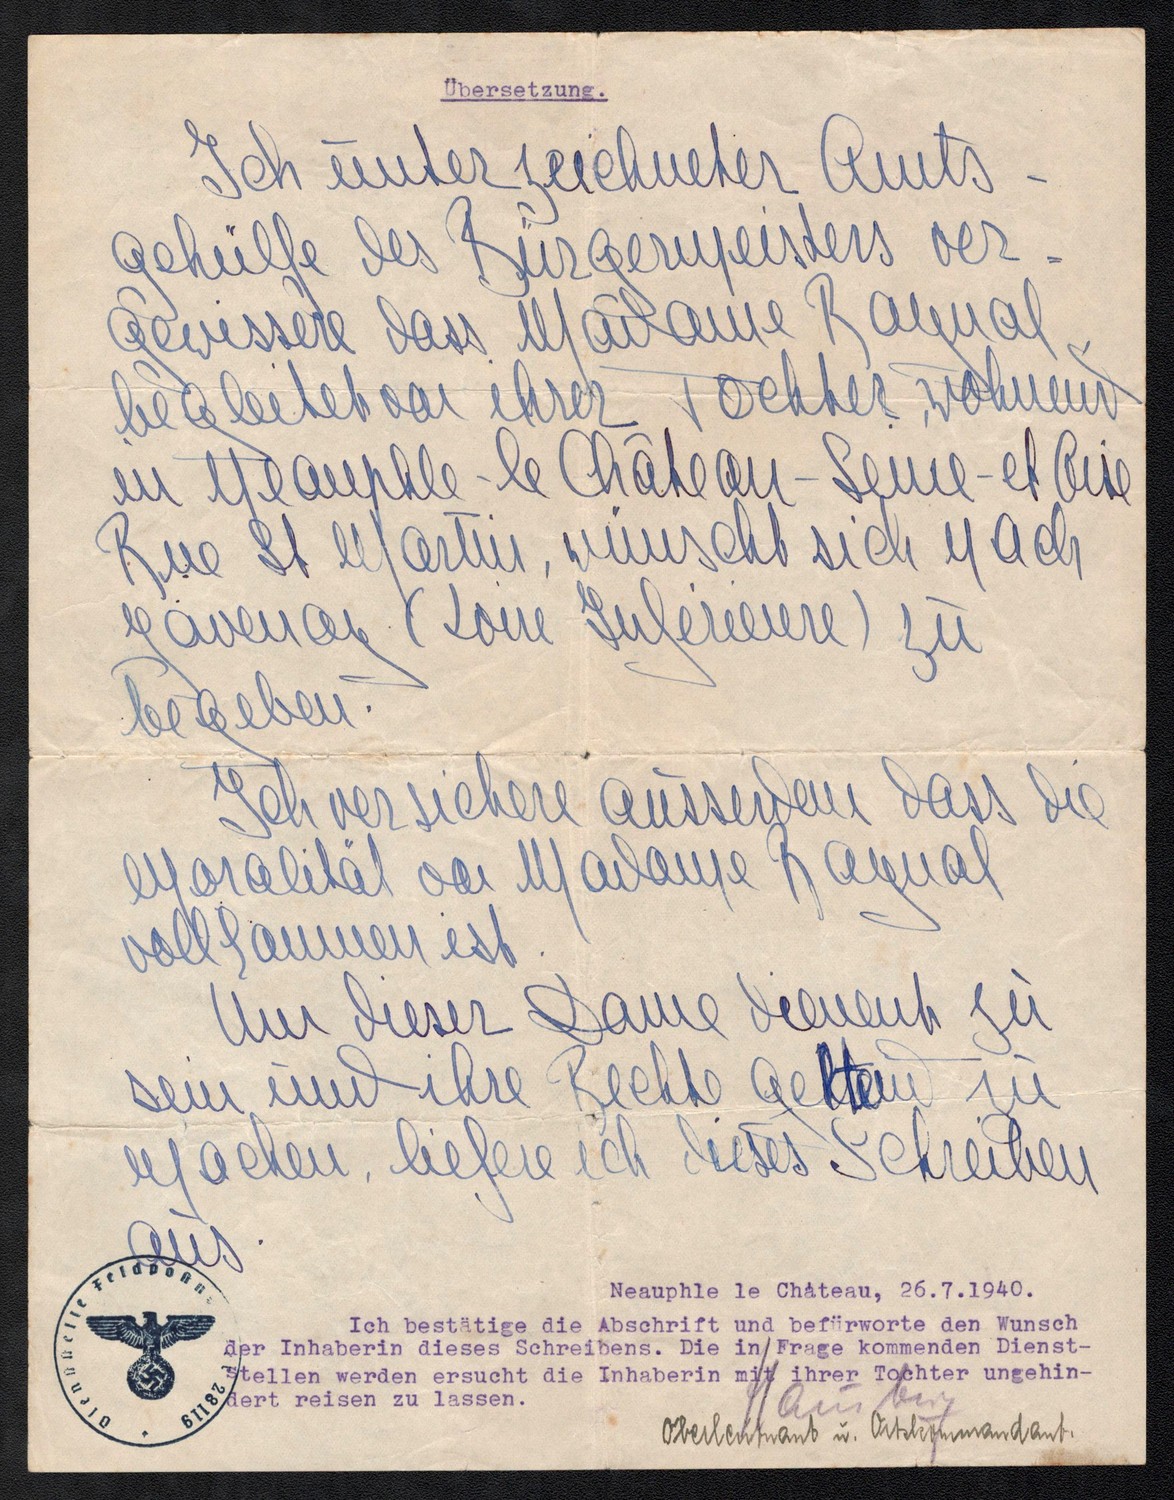 Übersetzung.
Ich unterzeichneter Amts-
gehülfe des Bürgermeisters ver-
gewissere dass Madame Raynal
begleitet von ihrer Tochter, wohnend
in Neauphle-le Château-Seine-et Oise
Rue St Martin, wünscht sich nach
Savenay (Loire Inférieure) zu
begeben.
Ich versichere ausserdem dass die
Moralität von Madame Raynal
vollkommen ist.
Um dieser Dame dienend zu
sein und ihre Rechte geltend zu
machen, liefere ich dieses Schreiben
aus.
Neauphle le Château, 26.7.1940.
Ich bestätige die Abschrift und befürworte den Wunsch
der Inhaberin dieses Schreibens. Die in Frage kommenden Dienst-
stellen werden ersucht die Inhaberin mit ihrer Tochter ungehin-
dert reisen zu lassen.
Oberleutnant u. Ortskommandant.
Dienststelle Feldpostnr 28119